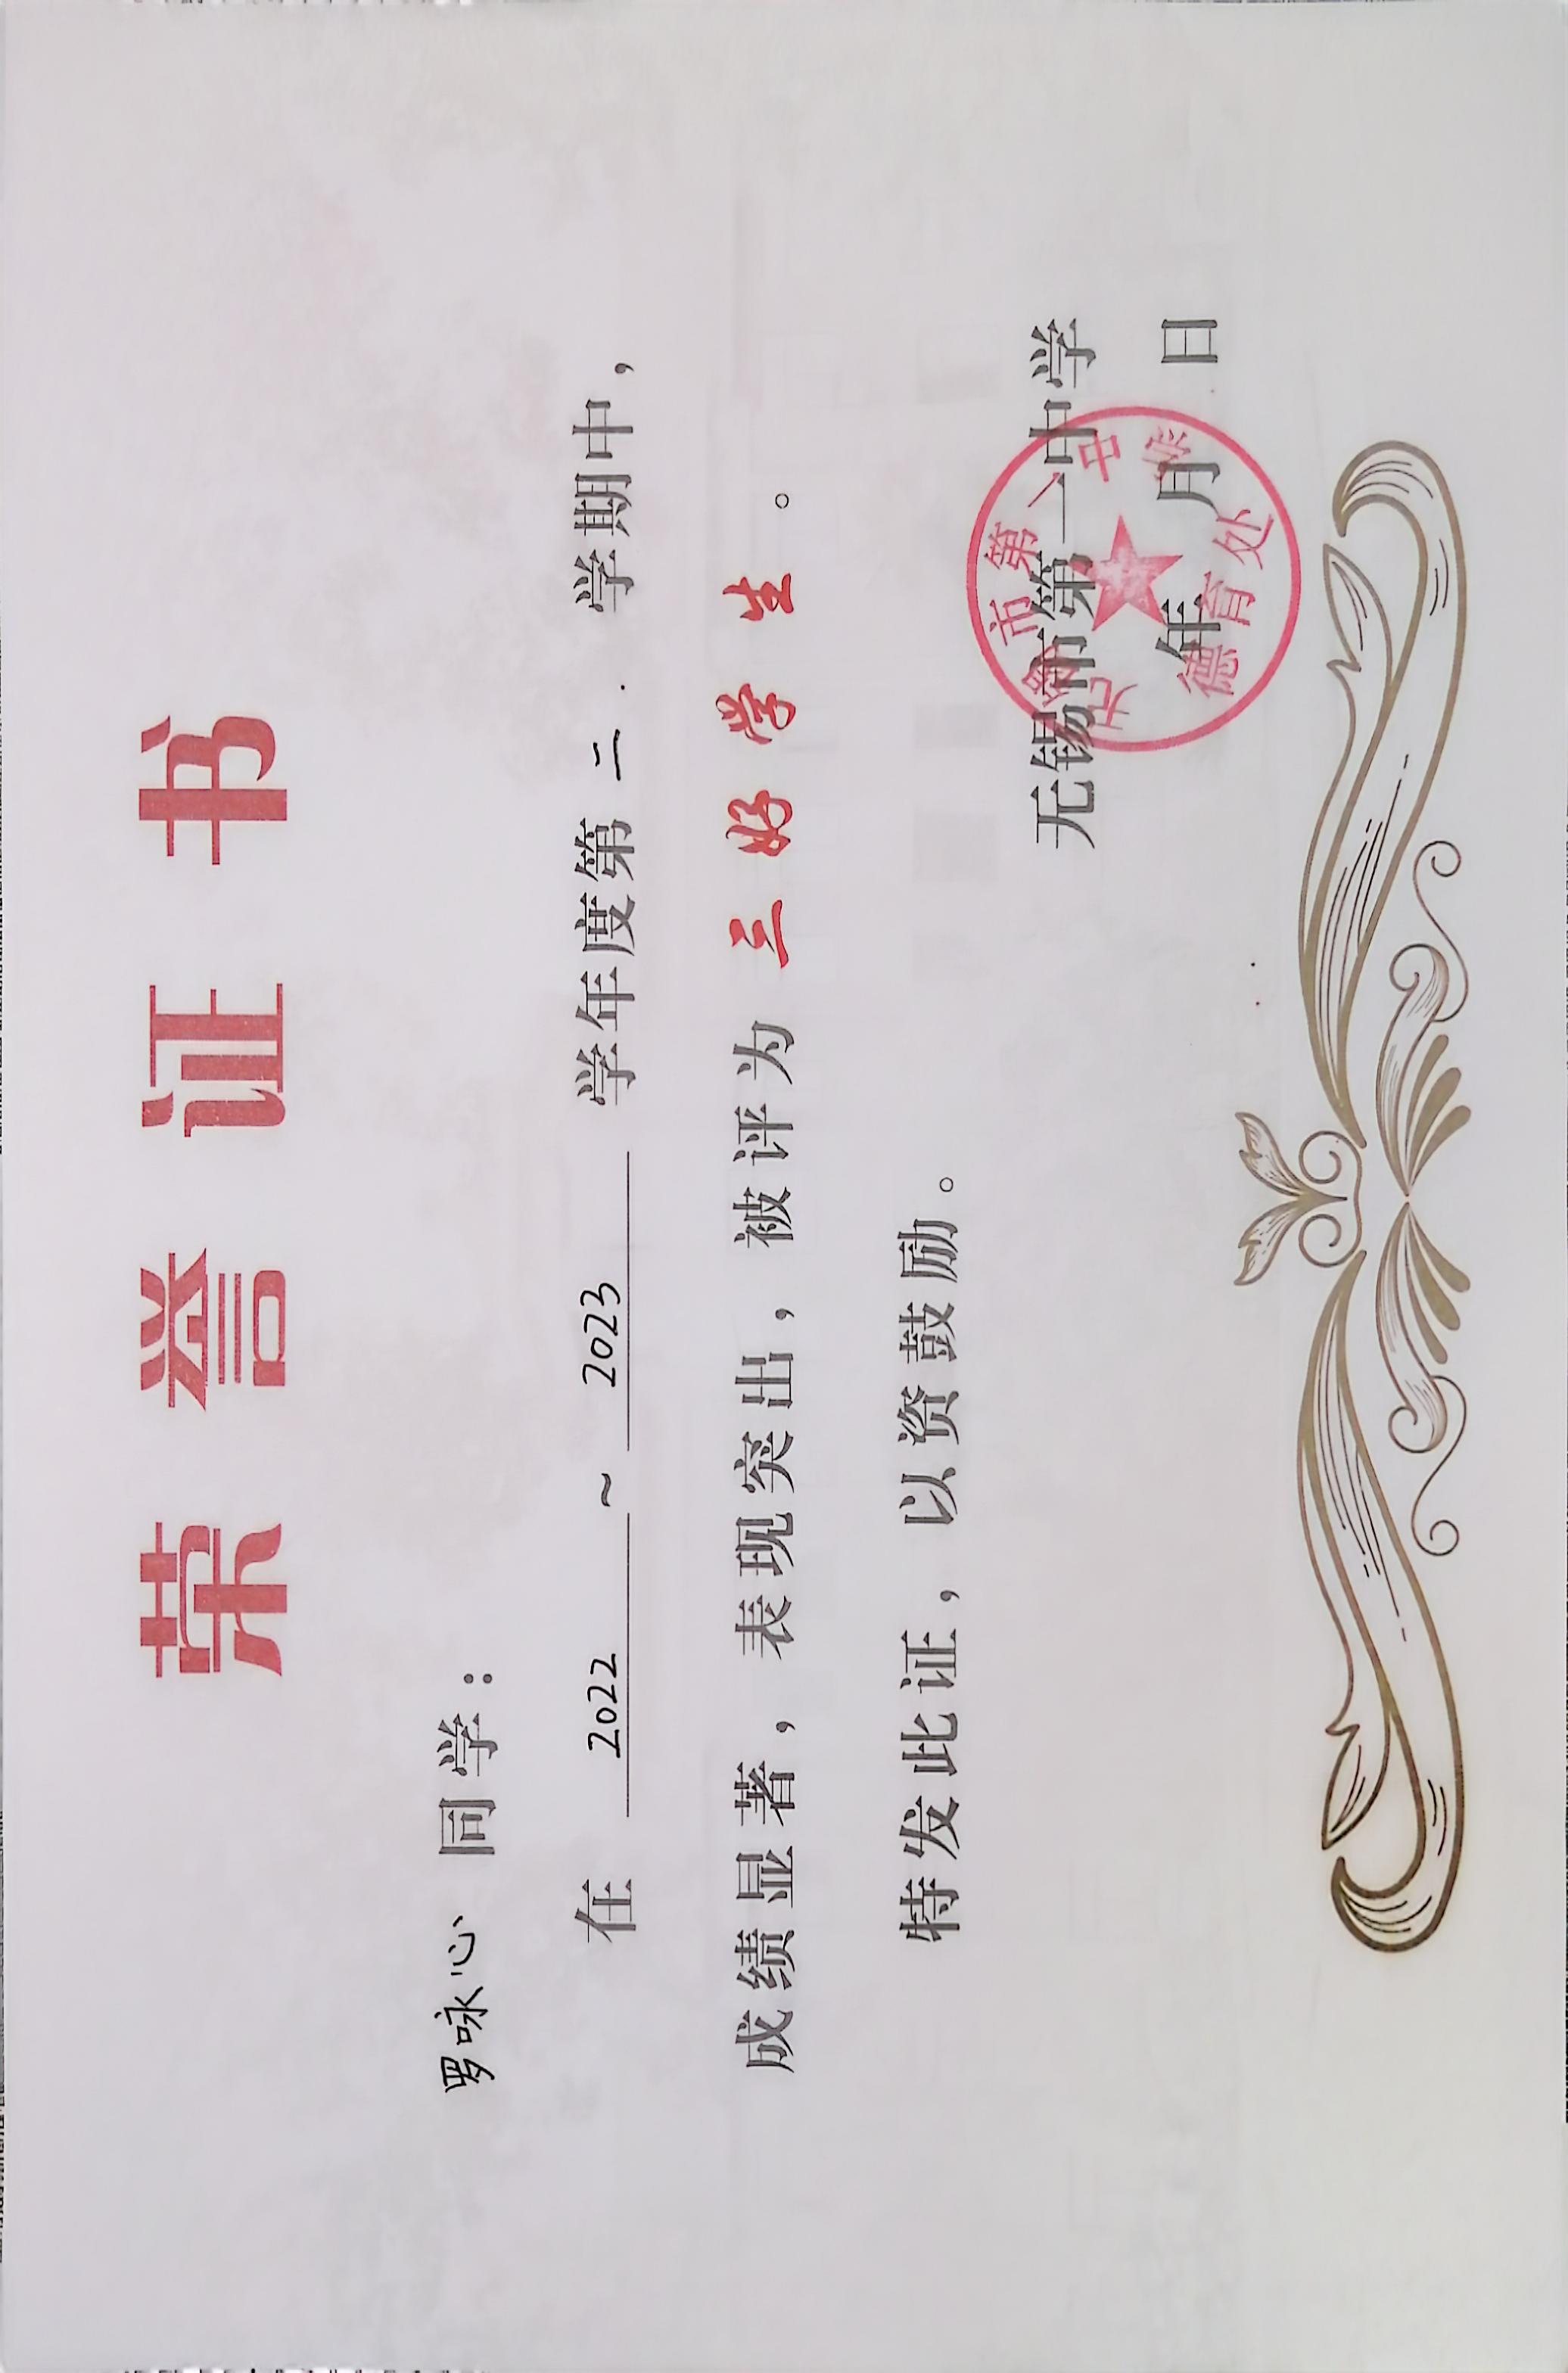 荣誉证书
罗咏心 同学：
在 2022 ~ 2023 学年度第 二 学期中，
成绩显著，表现突出，被评为 三好学生 。
特发此证，以资鼓励。
无锡市第一中学
年 月 日
无锡市第一中学
德育处